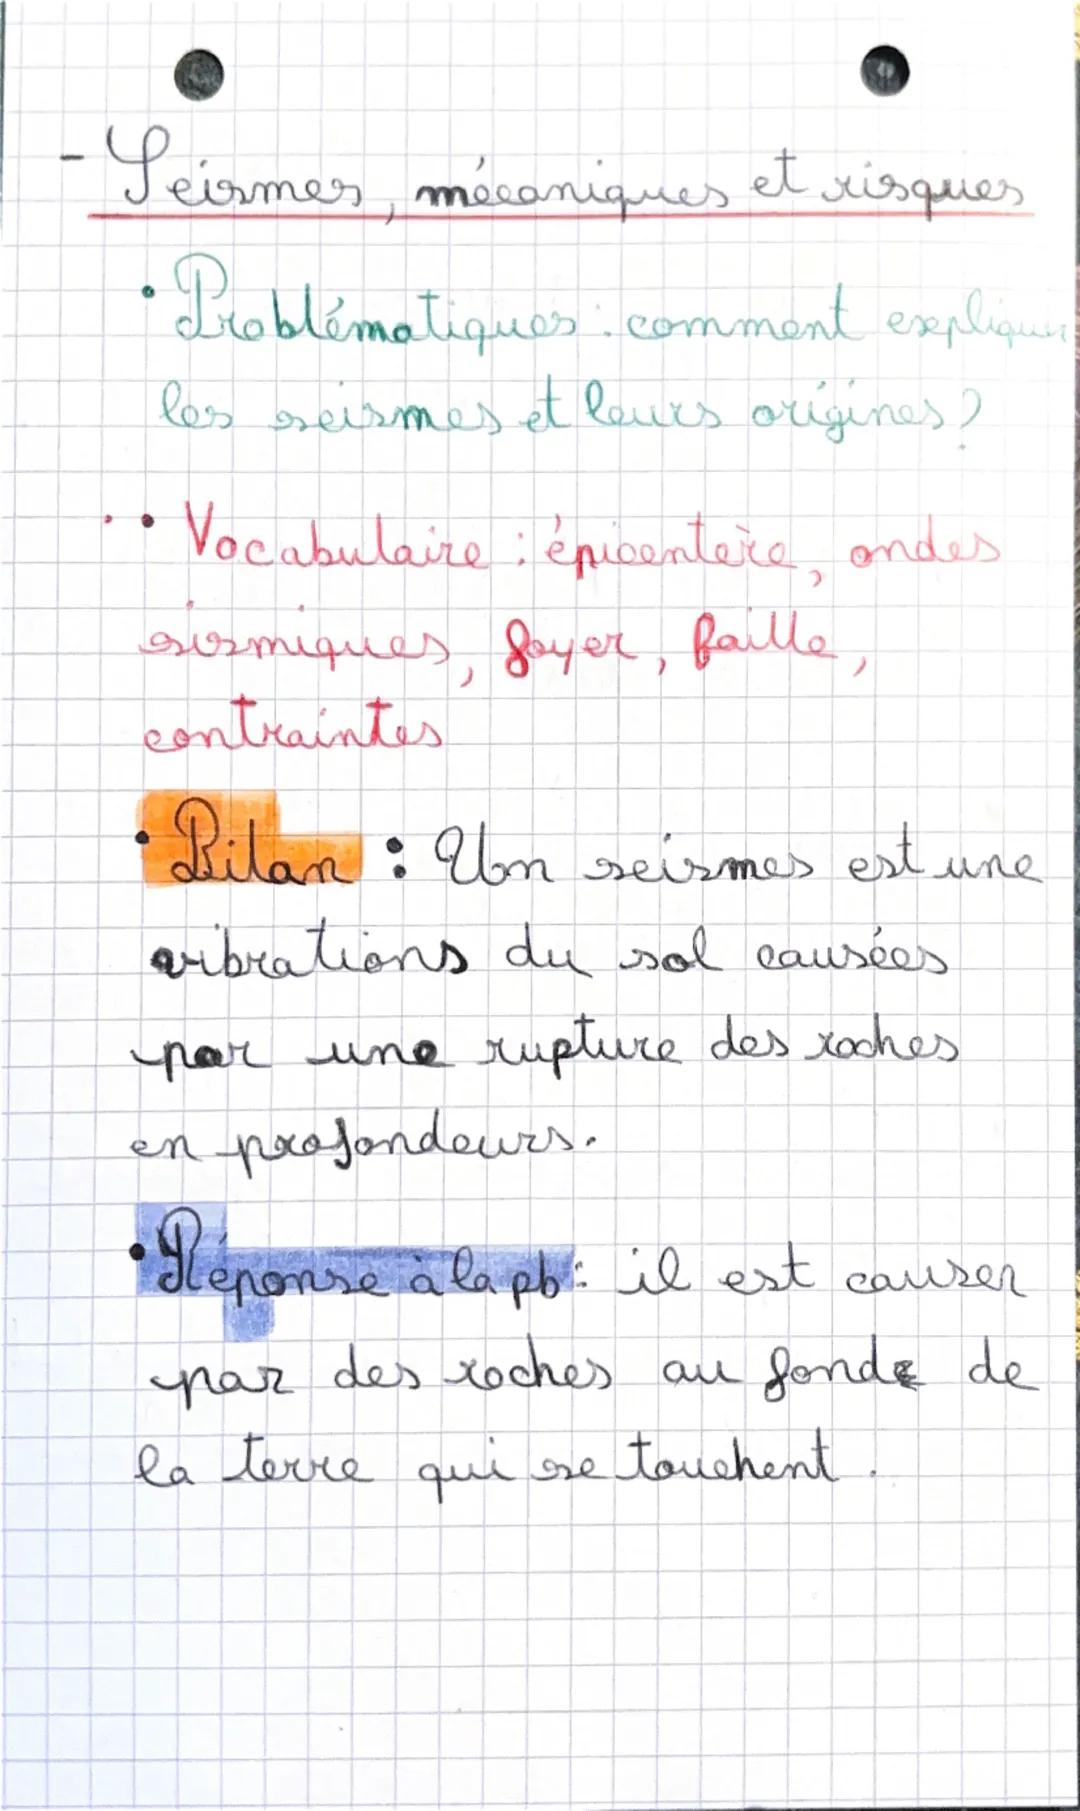 - Seismes, mécaniques et risques
• Problématiques : comment expliquer
les seismes et leurs origines ?
• Vocabulaire : épicentère, ondes
sismiques, foyer, faille,
contraintes
• Bilan : Un seismes est une
vibrations du sol causées
par une rupture des roches
en profondeurs.
• Réponse à la pb : il est causer
par des roches au fond de
la terre qui se touchent.